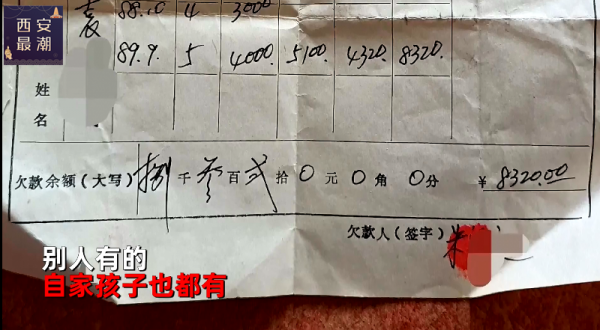 西安
最潮
袁 88.10 4 3000
89.9. 5 4000. 5100. 4320. 8320.
姓
名
欠款余额(大写) 捌 千 叁 百 贰 拾 0 元 0 角 0 分 ¥ 8320.00
欠款人(签字) 朱
别人有的
自家孩子也都有